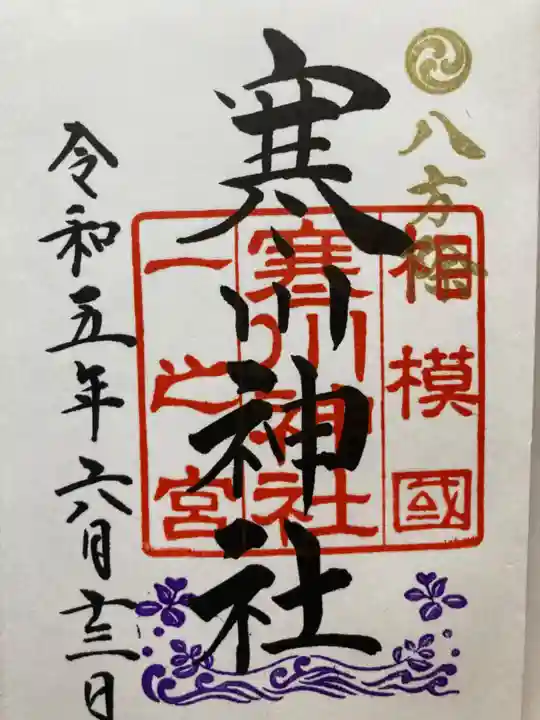 八方除
相模國
寒川神社
一之宮
寒川神社
令和五年六月十三日